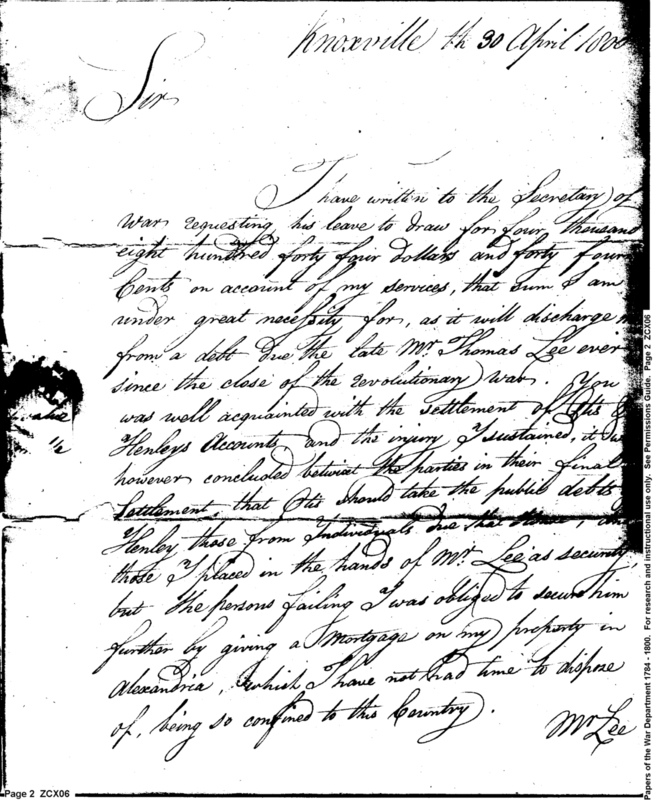 Knoxville th 30 April 1800
Sir
I have written to the Secretary of
War requesting his leave to draw for four thousand
eight hundred forty four dollars and forty four
Cents on account of my services, that sum I am
under great necessity for, as it will discharge
from a debt due the late Mr. Thomas Lee ever
since the close of the revolutionary war. You
was well acquainted with the settlement of Otis &
Henleys Accounts, and the injury I sustained, it
however concluded betwixt the parties in their final
Settlement, that Otis should take the public debts
Henley, those from Individuals due that House,
those I placed in the hands of Mr. Lee as security,
but the persons failing I was obliged to secure him
further by giving a Mortgage on my property in
Alexandria, which I have not had time to dispose
of, being so confined to this Country.
Mr Lee
1/2
Page 2 ZCX06
Papers of the War Department 1784 - 1800. For research and instructional use only. See Permissions Guide. Page 2 ZCX06